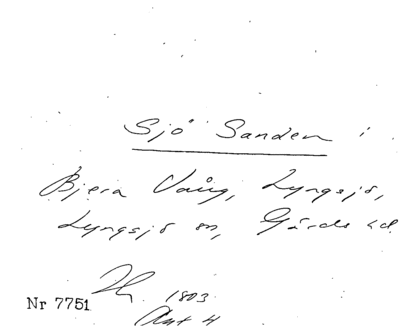 Sjö Sanden i
Bjera Vång, Lyngsjö,
Lyngsjö sn, Gärds hd
1803
Nr 7751
Akt 4